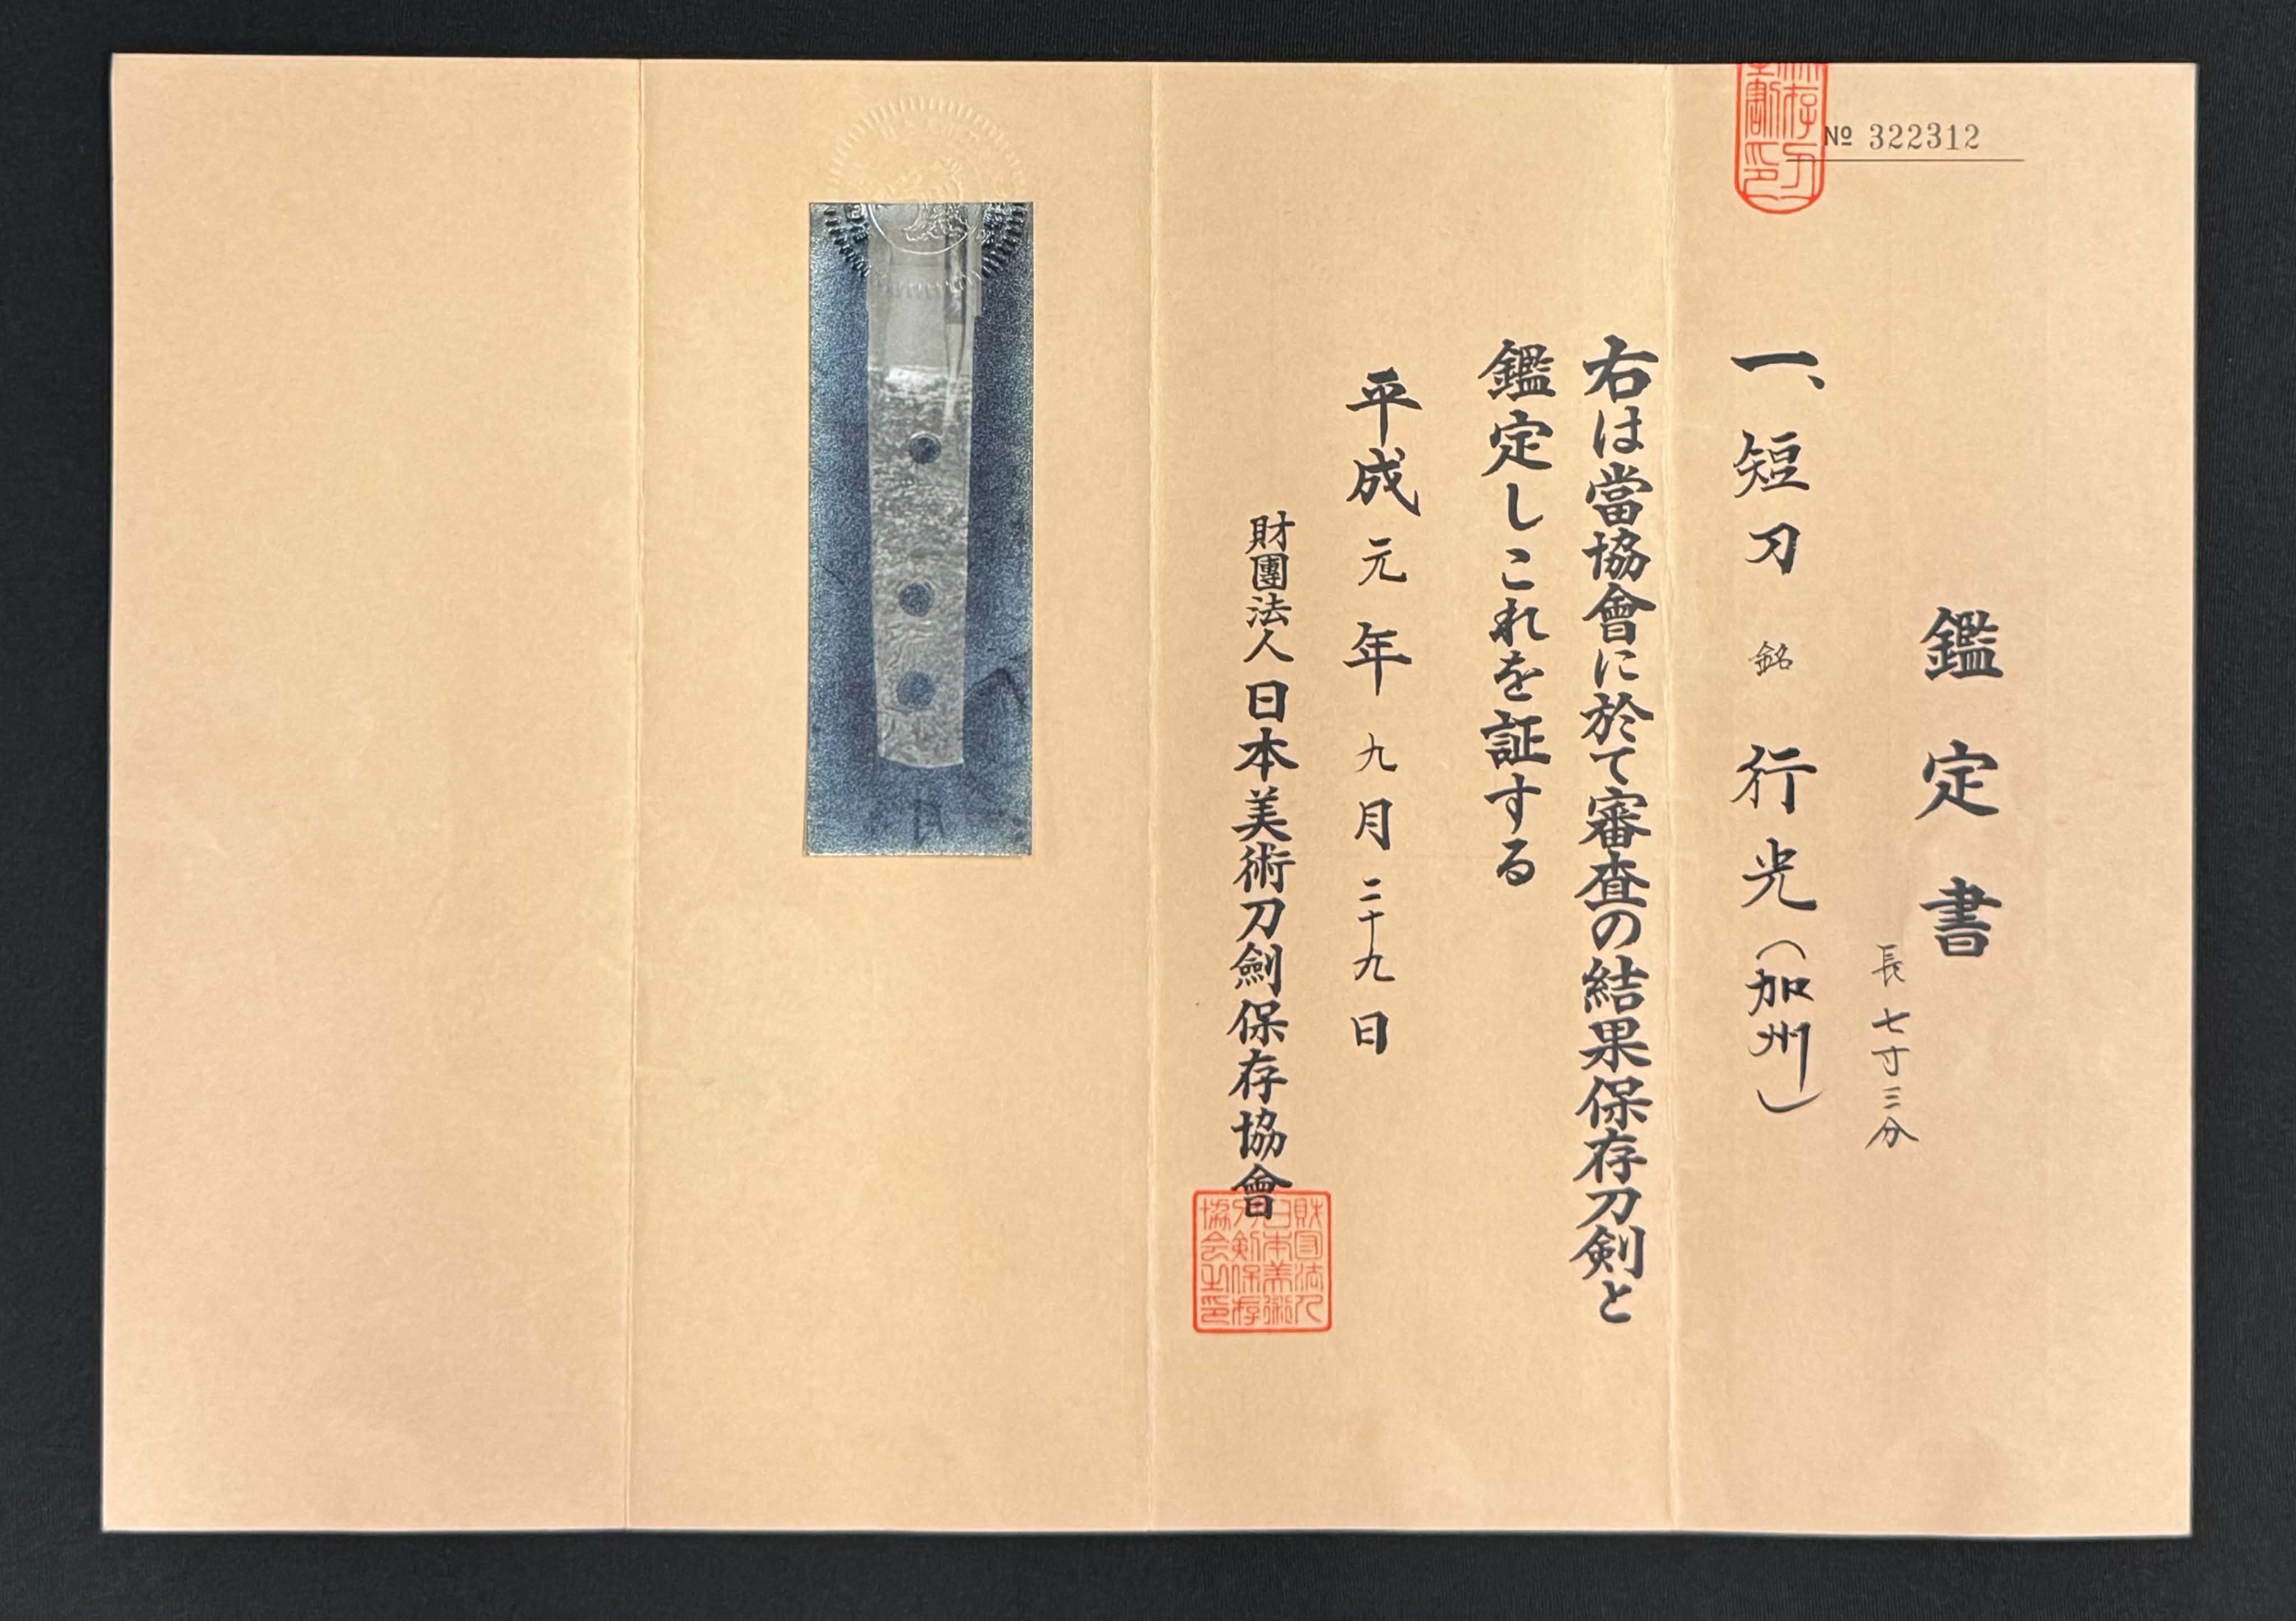 № 322312
鑑定書
長七寸三分
一、短刀 銘 行光(加州)
右は當協會に於て審査の結果保存刀剣と
鑑定しこれを証する
平成元年九月二十九日
財團法人日本美術刀劍保存協會
財団法人
日本美術
刀剣保存
協会之印